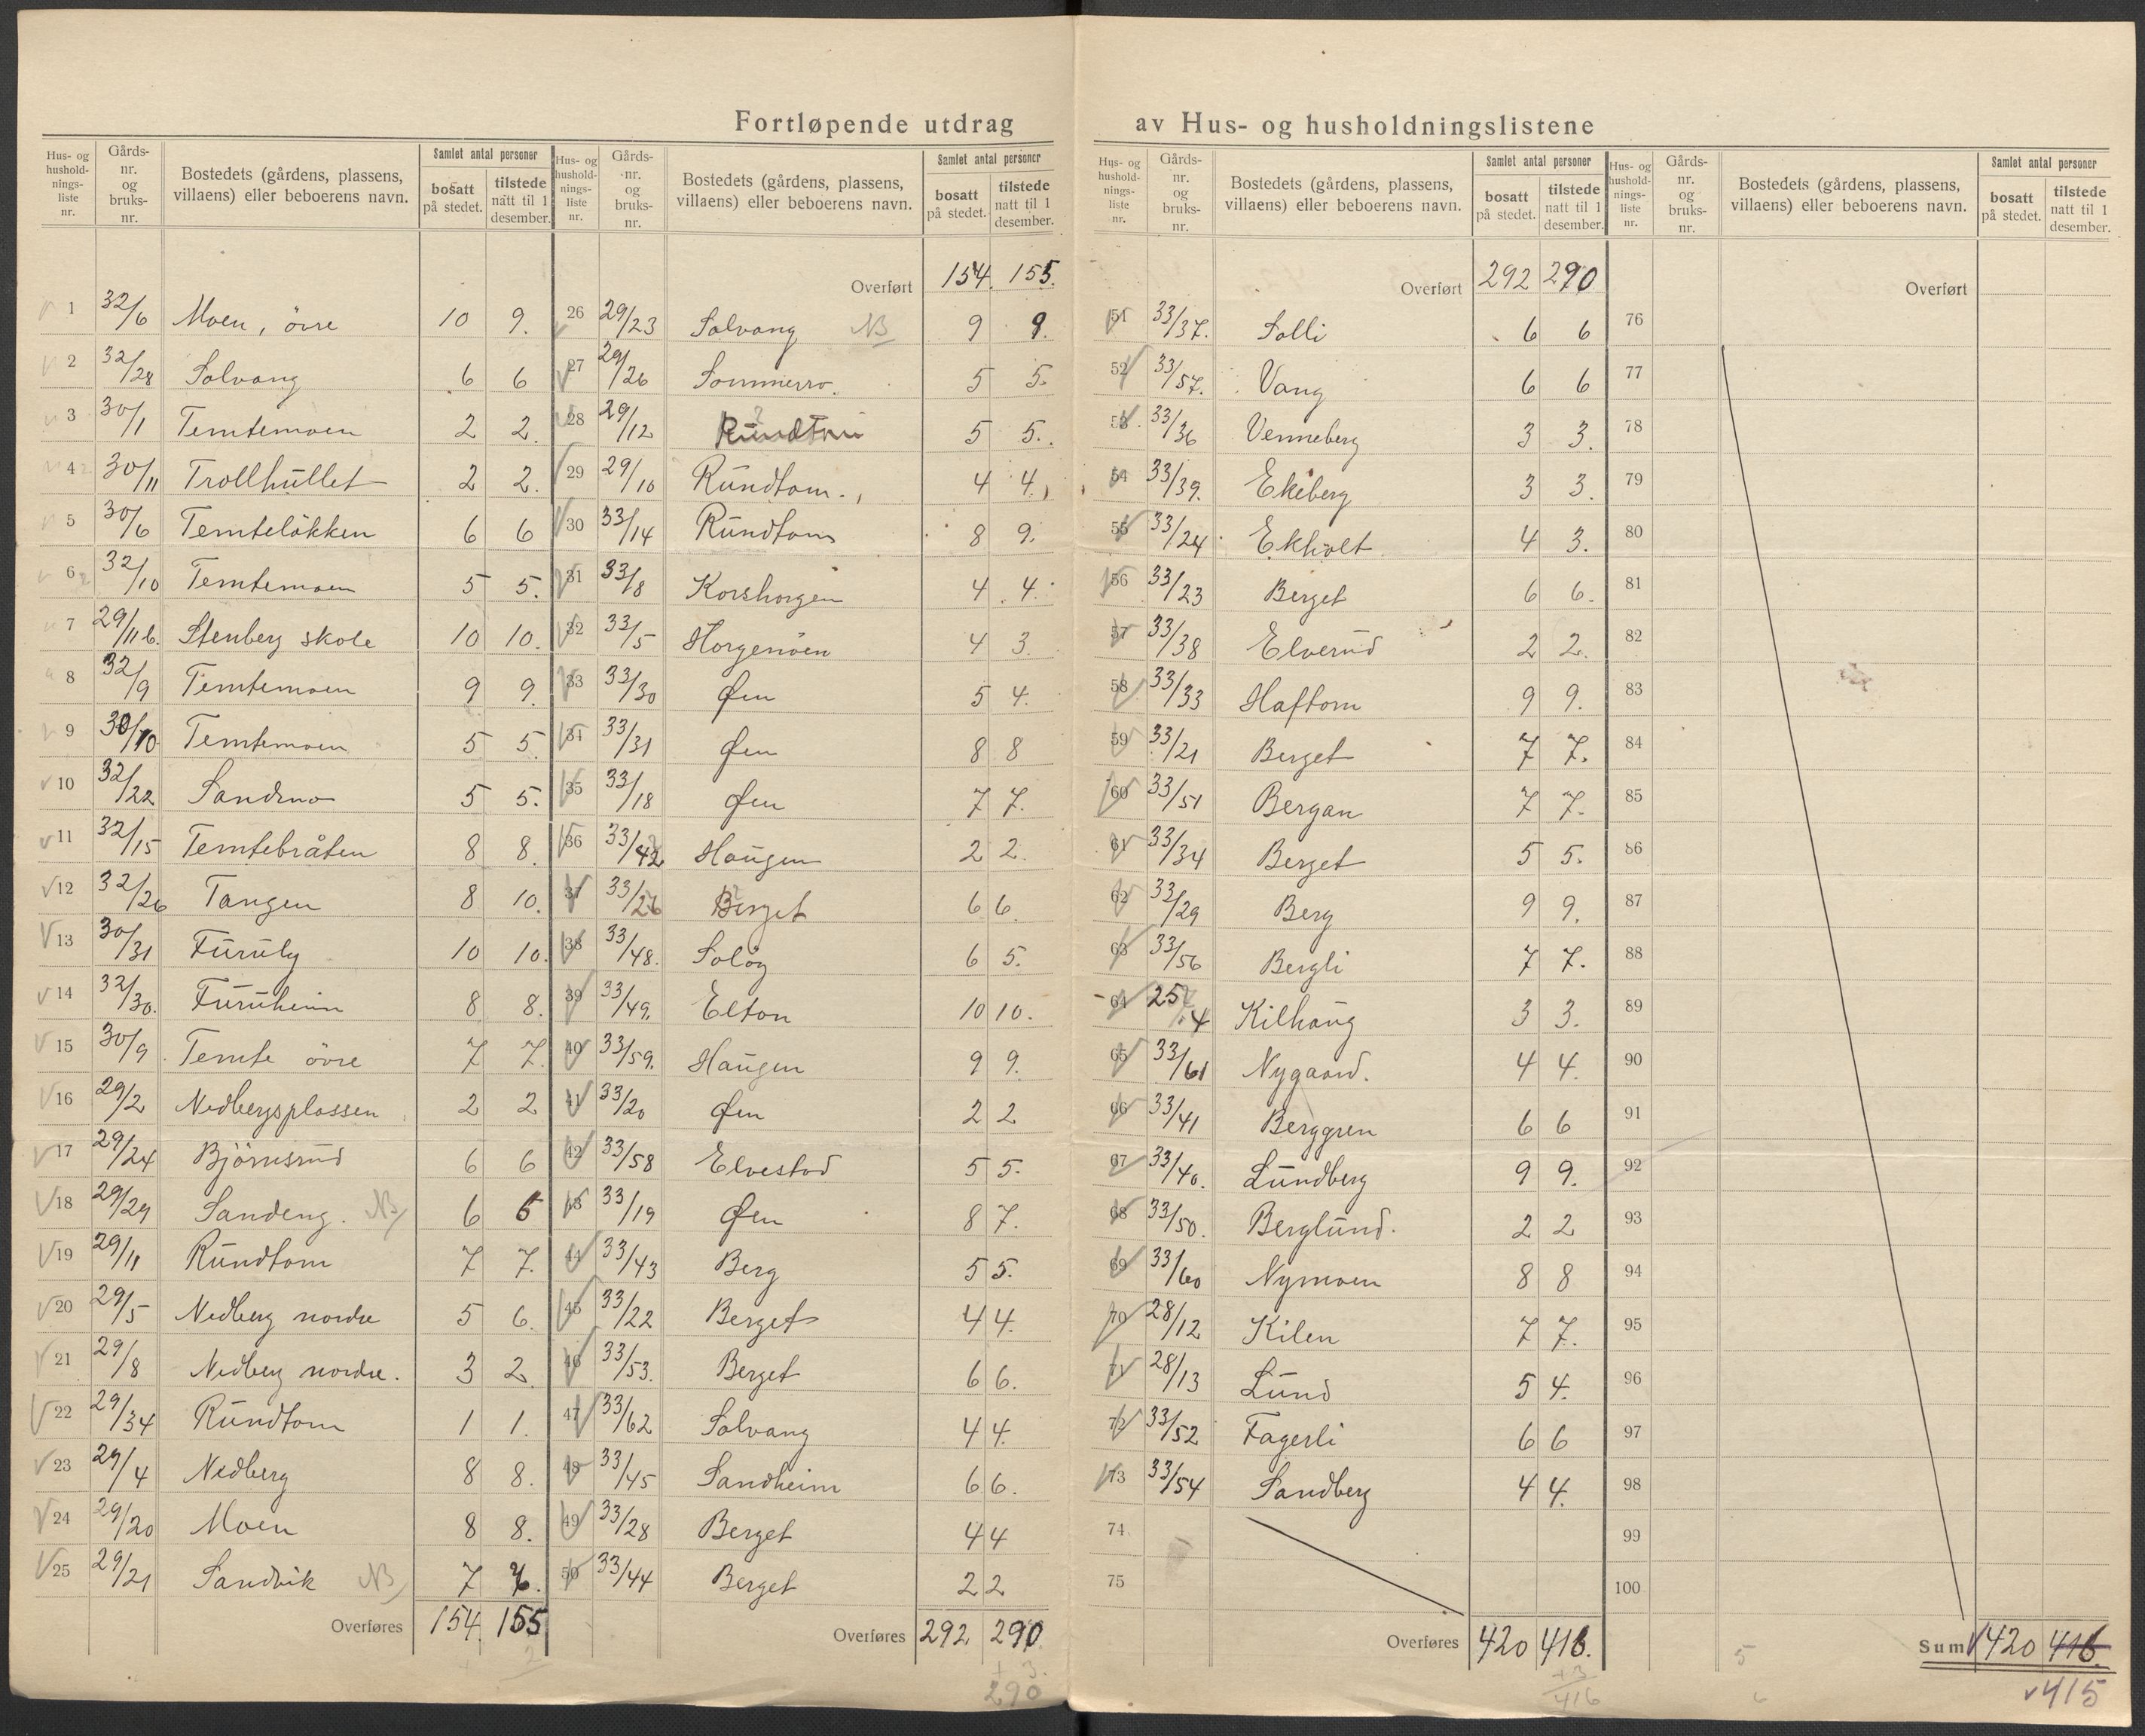 Fortløpende utdrag av Hus- og husholdningslistene
Hus- og husholdnings-liste nr. | Gårds-nr. og bruks-nr. | Bostedets (gårdens, plassens, villaens) eller beboerens navn. | Samlet antal personer | bosatt på stedet. | tilstede natt til 1 desember.
1 32/6 Moen, övre 10 9.
2 32/28 Solvang 6 6
3 30/1 Temtemoen 2 2.
4 30/11 Trollhullet 2 2.
5 30/6 Temteløkken 6 6
6 32/10 Temtemoen 5 5.
7 29/11 b. Stenberg skole 10 10.
8 32/9 Temtemoen 9 9.
9 30/10 Temtemoen 5 5
10 32/22 Sandmo 5 5.
11 32/15 Temtebråten 8 8.
12 32/26 Tangen 8 10.
13 30/31 Furuly 10 10.
14 32/30. Furuheim 8 8.
15 30/9 Temte övre 7 7.
16 29/2 Nedbergsplassen 2 2
17 29/24 Björnsrud 6 6
18 29/29 Sandeng. NB 6 6
19 29/11 Rundtom 7 7.
20 29/5 Nedberg nordre 5 6.
21 29/8 Nedberg nordre. 3 2.
22 29/34 Rundtom 1 1.
23 29/4 Nedberg 8 8.
24 29/20 Moen 8 8.
25 29/21 Sandvik NB 7
Overføres 154. 155
Hus- og husholdnings-liste nr. | Gårds-nr. og bruks-nr. | Bostedets (gårdens, plassens, villaens) eller beboerens navn. | Samlet antal personer | bosatt på stedet. | tilstede natt til 1 desember.
Overført 154. 155.
26 29/23 Solvang NB 9 9.
27 29/26 Sommerro. 5 5.
28 29/12 Rundtom 5 5.
29 29/10 Rundtom. 4 4.
30 33/14 Rundtom 8 9.
31 33/8 Korshorgen 4 4.
32 33/5 Horgenöen 4 3.
33 33/30 Øen 5 4.
34 33/31 Øen 8 8
35 33/18 Øen 7 7.
36 33/42 Haugen 2 2.
37 33/26 Berget 6 6.
38 33/48. Soløg 6 5.
39 33/49. Elton 10 10.
40 33/59. Haugen 9 9.
41 33/20 Øen 2 2
42 33/58 Elvestad 5 5.
43 33/19 Øen 8 7.
44 33/43 Berg 5 5.
45 33/22 Berget 4 4.
46 33/53. Berget 6 6.
47 33/62 Solvang 4 4.
48 33/45 Sandheim 6 6.
49 33/28 Berget 4 4
50 33/44 Berget 2 2
Overføres 292 290.
+ 3.
290
Hus- og husholdnings-liste nr. | Gårds-nr. og bruks-nr. | Bostedets (gårdens, plassens, villaens) eller beboerens navn. | Samlet antal personer | bosatt på stedet. | tilstede natt til 1 desember.
Overført 292 290
51 33/37. Solli 6 6
52 33/57. Vang 6 6
53 33/36 Venneberg 3 3.
54 33/39. Ekeberg 3 3.
55 33/24 Ekholt 4 3.
56 33/23 Berget 6 6.
57 33/38 Elverud 2 2.
58 33/33 Haftorn 9 9.
59 33/21 Berget 7 7.
60 33/51 Bergan 7 7.
61 33/34 Berget 5 5.
62 33/29 Berg 9 9.
63 33/56 Bergli 7 7.
64 25/4 Kilhaug 3 3.
65 33/61 Nygaard. 4 4.
66 33/41 Berggren 6 6
67 33/40. Lundberg 9 9.
68 33/50. Berglund. 2 2
69 33/60 Nymoen 8 8
70 28/12 Kilen 7 7.
71 28/13 Lund 5 4.
72 33/52 Fagerli 6 6
73 33/54 Sandberg 4 4.
74
75
Overføres 420 416.
+3
416
Hus- og husholdnings-liste nr. | Gårds-nr. og bruks-nr. | Bostedets (gårdens, plassens, villaens) eller beboerens navn. | Samlet antal personer | bosatt på stedet. | tilstede natt til 1 desember.
Overført
76
77
78
79
80
81
82
83
84
85
86
87
88
89
90
91
92
93
94
95
96
97
98
99
100
5
Sum 420 416.
415